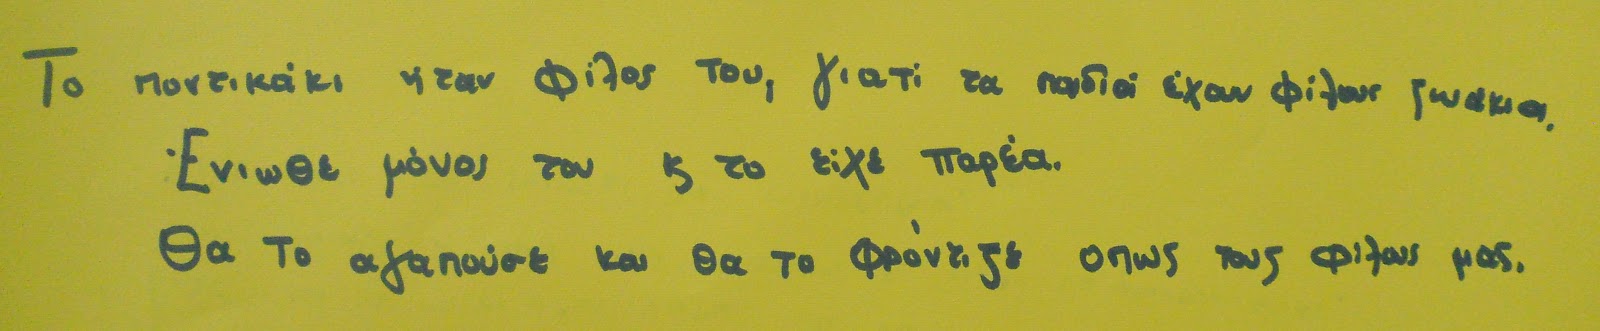 Το ποντικάκι ήταν φίλος του, γιατί τα παιδιά έχουν φίλους ζωάκια.
Ένιωθε μόνος του κ το είχε παρέα.
Θα το αγαπούσε και θα το φρόντιζε οπως τους φίλους μας.